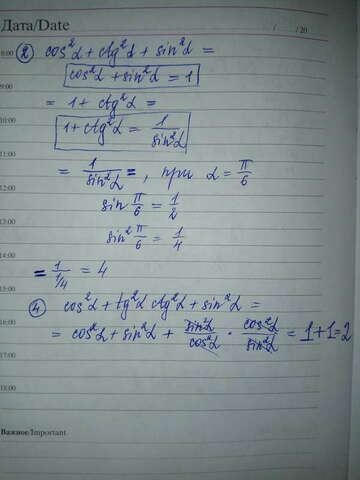 Дата/Date
/ /20
8:00
② cos²α + ctg²α + sin²α =
9:00
cos²α + sin²α = 1
= 1 + ctg²α =
10:00
1 + ctg²α = 1/sin²α
11:00
= 1/sin²α =, при α = π/6
12:00
sin π/6 = 1/2
13:00
sin² π/6 = 1/4
14:00
= 1/(1/4) = 4
15:00
④ cos²α + tg²α ctg²α + sin²α =
16:00
= cos²α + sin²α + sin²α/cos²α · cos²α/sin²α = 1+1=2
17:00
18:00
Важное/Important